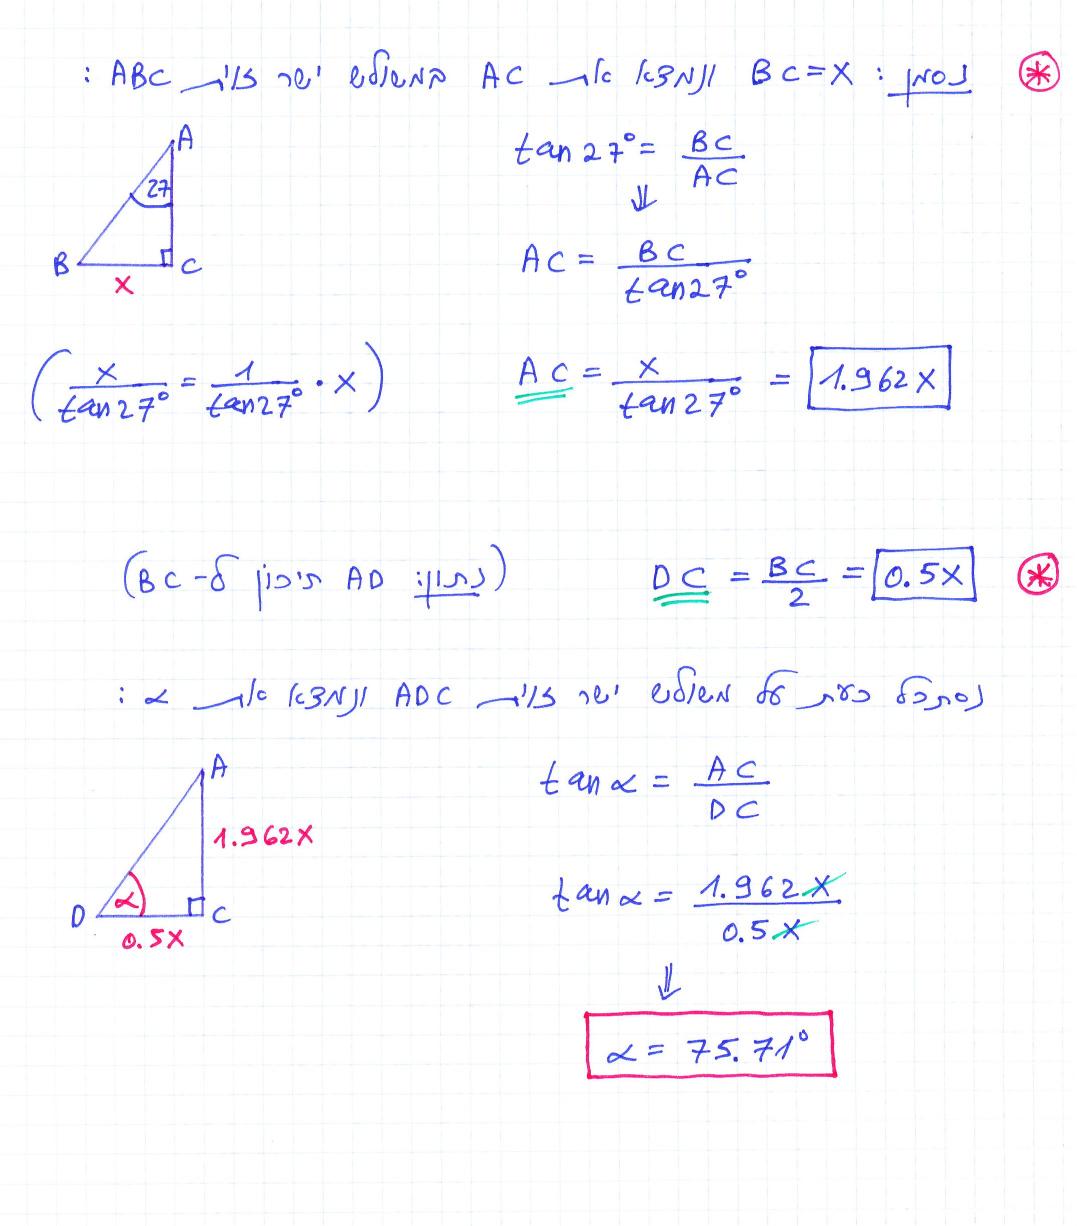 נסמן: BC=X ונמצא את AC במשולש ישר זווית ABC :
A
27
B
C
X
tan27°= BC/AC
⇓
AC= BC/tan27°
AC = X/tan27° = 1.962X
(X/tan27° = 1/tan27° · X)
DC = BC/2 = 0.5X
(נתון: AD תיכון ל-BC)
נסתכל כעת על משולש ישר זווית ADC ונמצא את α :
A
1.962X
D
α
C
0.5X
tanα = AC/DC
tanα = 1.962X/0.5X
⇓
α = 75.71°